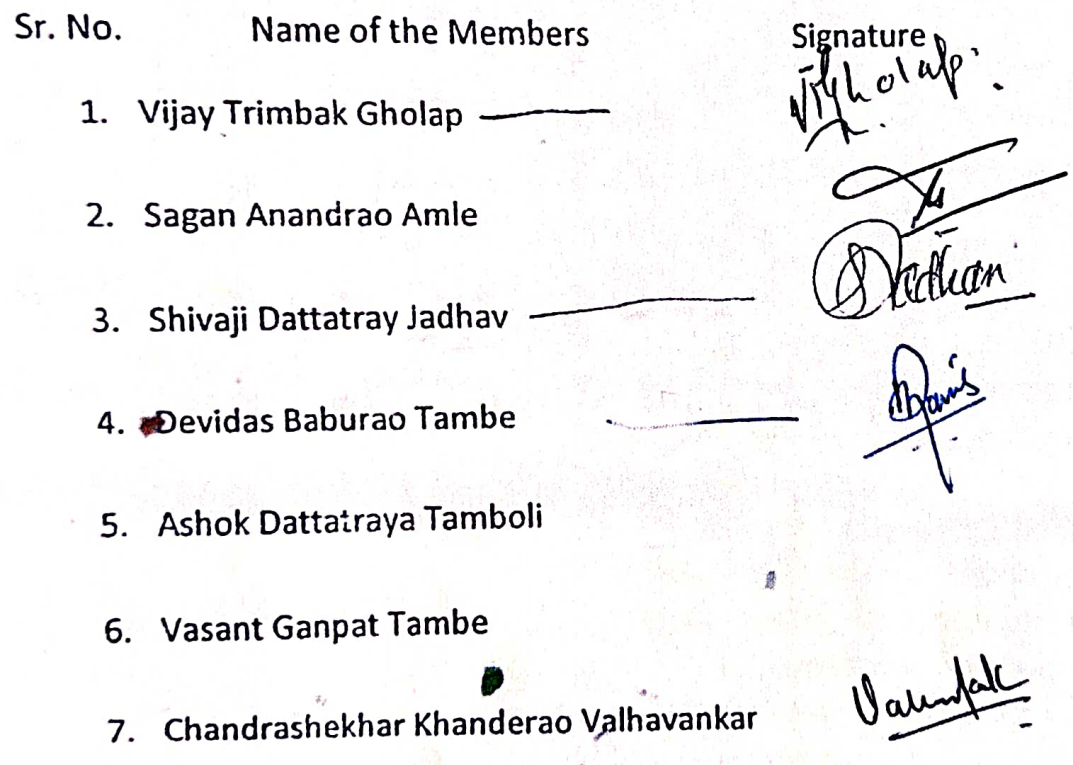 Sr. No. Name of the Members Signature
1. Vijay Trimbak Gholap Vtgholap.
2. Sagan Anandrao Amle
3. Shivaji Dattatray Jadhav
4. Devidas Baburao Tambe
5. Ashok Dattatraya Tamboli
6. Vasant Ganpat Tambe
7. Chandrashekhar Khanderao Valhavankar